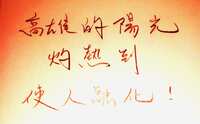 高雄的陽光
灼熱到
使人融化！